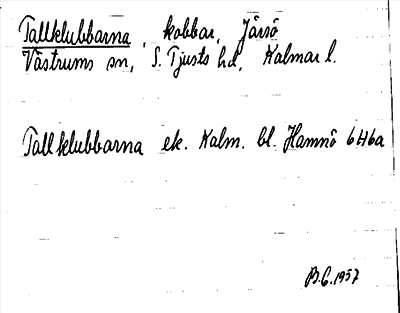 Tallklubbarna, kobbar, Järsö
Västrums sn, S. Tjusts hd, Kalmar l.
Tallklubbarna ek. Kalm. bl. Hamnö 6H6a
B.G. 1957